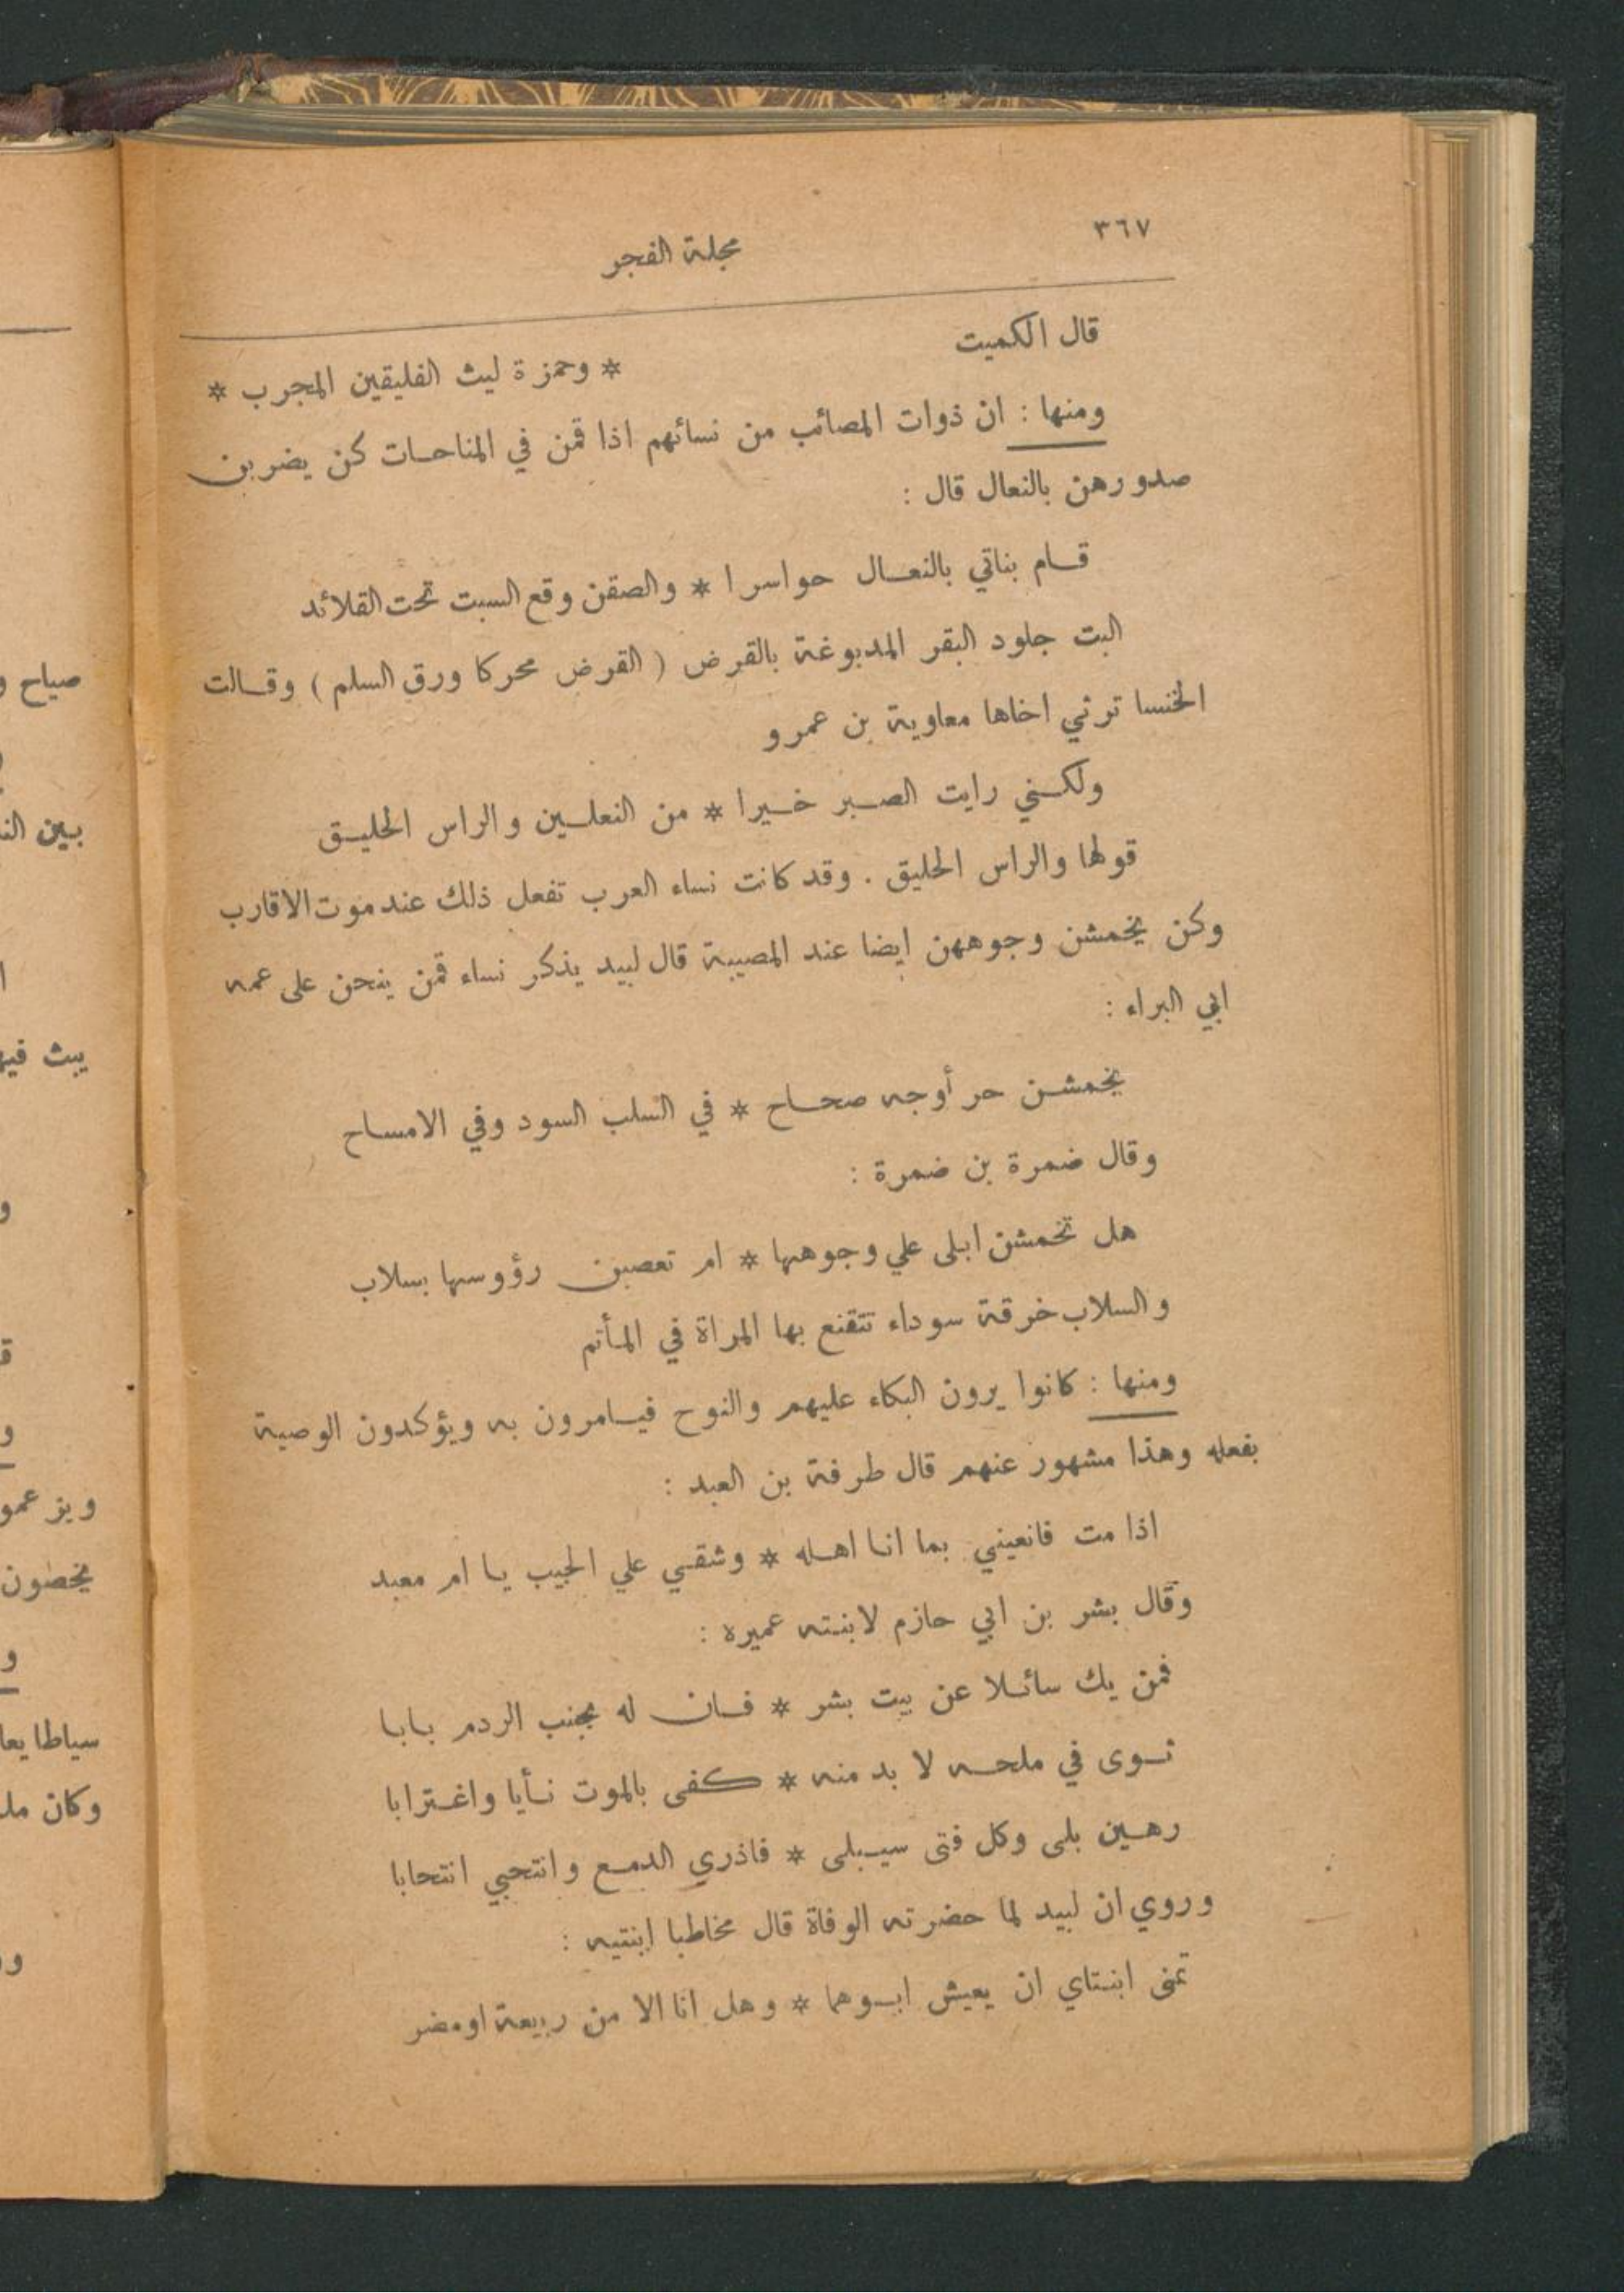 ٣٦٧
مجلة الفجر
قال الكميت
* وحمزة ليث الفليقين المجرب *
ومنها : ان ذوات المصائب من نسائهم اذا قمن في المناحات كن يضربن
صدورهن بالنعال قال :
قام بناتي بالنعال حواسرا * والصقن وقع السبت تحت القلائد
البت جلود البقر المدبوغة بالقرض ( القرض محركا ورق السلم ) وقالت
الخنسا ترثي اخاها معاوية بن عمرو
ولكني رايت الصبر خيرا * من النعلين والراس الحليق
قولها والراس الحليق . وقد كانت نساء العرب تفعل ذلك عند موت الاقارب
وكن يخمشن وجوههن ايضا عند المصيبة قال لبيد يذكر نساء قمن ينحن على عمه
ابي البراء :
يخمشن حر أوجه صحاح * في السلب السود وفي الامساح
وقال ضمرة بن ضمرة :
هل تخمشن ابلى علي وجوهها * ام تعصبن رؤوسها بسلاب
والسلاب خرقة سوداء تتقنع بها المراة في المأتم
ومنها : كانوا يرون البكاء عليهم والنوح فيامرون به ويؤكدون الوصية
بفعله وهذا مشهور عنهم قال طرفة بن العبد :
اذا مت فانعيني بما انا اهله * وشقي علي الجيب يا ام معبد
وقال بشر بن ابي حازم لابنته عميره :
فمن يك سائلا عن بيت بشر * فان له بجنب الردم بابا
ثوى في ملحه لا بد منه * كفى بالموت نأيا واغترابا
رهين بلى وكل فتى سيبلى * فاذري الدمع وانتحبي انتحابا
وروي ان لبيد لما حضرته الوفاة قال مخاطبا ابنتيه :
تمنى ابنتاي ان يعيش ابوهما * وهل انا الا من ربيعة او مضر
صياح
يبث
يخصون